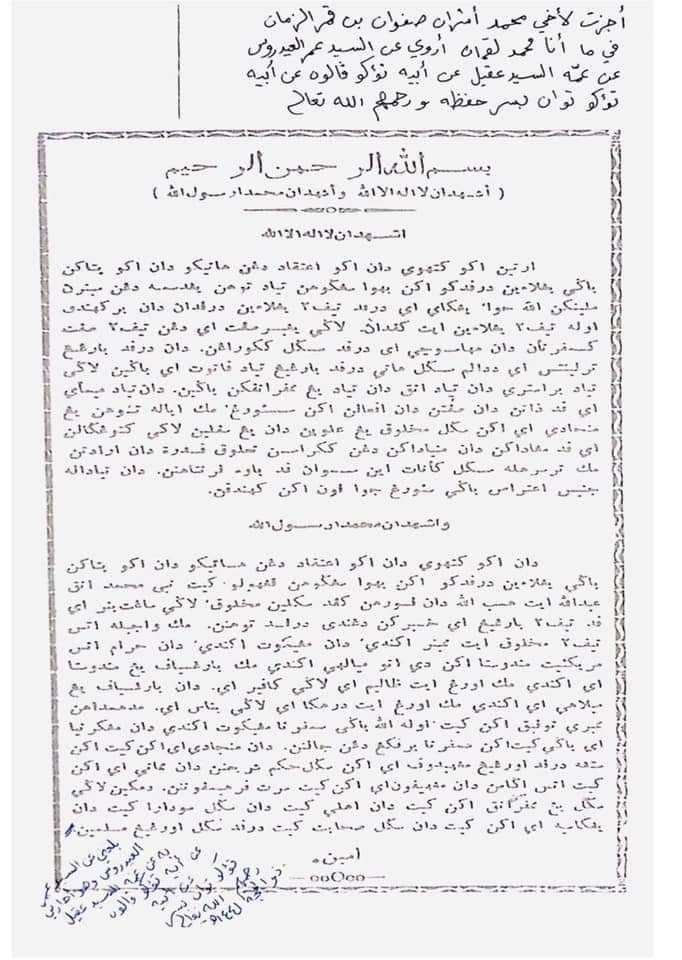 أجزت لأخي محمد صفوان بن قمر الزمان
في ما أنا محمد لقمان أروي عن السيد عمر العيدروس
عن عمّه السيد عقيل عن أبيه توكو ڤالوه عن أبيه
توكو توان بسر حفظه ورحمهم الله تعالى
بسم الله الرحمن الرحيم
( أشهد ان لا اله الا الله وأشهد ان محمدا رسول الله )
اشهد ان لا اله الا الله
ارتين اكو كتهوي دان اكو اعتقاد دڠن هاتيكو دان اكو يتاكن
باݢي يڠلاءين درفدكو اكن بهوا سڠݢوهن تياد توهن يڠدسمبه دڠن سبنرڽ
ملينكن الله جوا٠ يڠكاي اي درفد تيف٢ يڠلاءين درفدان دان بركهندق
اوله تيف٢ يڠلاءين ايت كفدان٠ لاݢي يڠبرصفت اي دڠن تيف٢ صفت
كسمفرنأن دان مهاسوچي اي درفد سݢل ككورڠن. دان درفد بارڠيڠ
ترلينتس اي ددالم سݢل هاتي درفد بارڠيڠ تياد فاتوت اي باݢين لاݢي
تياد براستري دان تياد انق دان تياد يڠ ممفرانقكن باݢين. دان تياد مپمأي
اي فد ذاتن دان صفتن دان افعالن اكن سسئورڠ٠ مك اياله توهن يڠ
منجادي اي اكن سݢل مخلوق يڠ علوين دان يڠ سفلين لاݢي
اي فد مڠاداكن دان منياداكن دڠن ككراسن تعلوق قدرة دان ارادتن
مك ترسرهله سݢل كأنات اين سموان فد باوه فرنتاهن. دان تيادله
جنيس اعتراض باݢي سئورڠ جوا فون اكن كهندقن.
واشهد ان محمدا رسول الله
دان اكو كتهوي دان اكو اعتقاد دڠن هاتيكو دان اكو يتاكن
باݢي يڠلاءين درفدكو اكن بهوا سڠݢوهن فڠهولو كيت نبي محمد انق
عبدالله ايت همب الله دان فسورهن كفد سكلين مخلوق٠ لاݢي ماهت بنر اي
فد تيف٢ بارڠيڠ اي خبركن دڠندي درفد توهنن. مك واجبله اتس
تيف٢ مخلوق ايت ممبنر اكندي٠ دان مڠيكوت اكندي٠ دان حرام اتس
مريكئيت مندوستا اكن دي اتو مپالهي اكندي مك بارڠسياف يڠ مندوستا
اي اكندي مك اورڠ ايت ظاليم اي لاݢي كافير اي. دان بارڠسياف يڠ
مپلاهي اي اكندي مك اورڠ ايت درهكا اي لاݢي بناس اي. مدهمداهن
ممبري توفيق اكن كيت٠ اوله الله باݢي سمفرنا مڠيكوت اكندي دان مڠكرنيا
اي باݢي كيت اكن سمفرنا برفكڠ دڠن جالنن. دان منجادي اي اكن كيت اكن
ستڠه درفد اورڠيڠ مڠهيدوف اي اكن سݢل حكم شريعتن دان مماتي اي اكن
كيت اتس اݢامن دان مڠهيمفون اي اكن كيت سرت فرهيمفوننن. دمكين لاݢي
سݢل يڠ ممفرانق اكن كيت دان اهلي كيت دان سݢل سودارا كيت دان
يڠكاسيه اي اكن كيت دان سݢل صحابت كيت درفد سݢل اورڠيڠ مسلمين٠
امين.
عن السيد عمر
العيدروس وهو اجازني
به عن عمه السيد عقيل
عن أبيه توكو ڤالوه
عن أبيه
توكو توان بسر
رحمهم الله تعالى